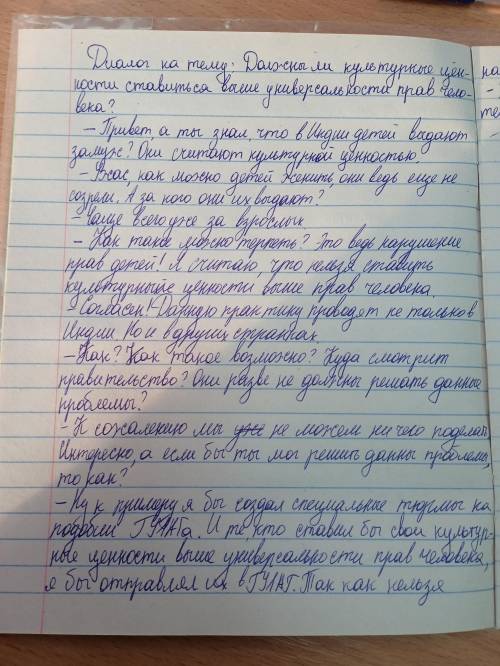 Диалог на тему: Должны ли культурные цен-
ности ставиться выше универсальности прав чело-
века?
– Привет, а ты знал, что в Индии детей выдают
замуж? Они считают культурной ценностью.
– Ужас, как можно детей женить, они ведь еще не
созрели. А за кого они их выдают?
– Чаще всего уже за взрослых.
– Как такое можно терпеть? Это ведь нарушение
прав детей! Я считаю, что нельзя ставить
культурные ценности выше прав человека.
– Согласен! Данную практику проводят не только в
Индии. Но и в других странах.
– Как? Как такое возможно? Куда смотрит
правительство? Они разве не должны решать данные
проблемы?
– К сожалению мы не можем ничего поделать.
Интересно, а если бы ты мог решить данны проблемы,
то как?
– Ну к примеру я бы создал специальные тюрьмы на
подобии ГУЛАГа. И те, кто ставил бы свои культур-
ные ценности выше универсальности прав человека,
я бы отправлял их в ГУЛАГ. Так как нельзя
на